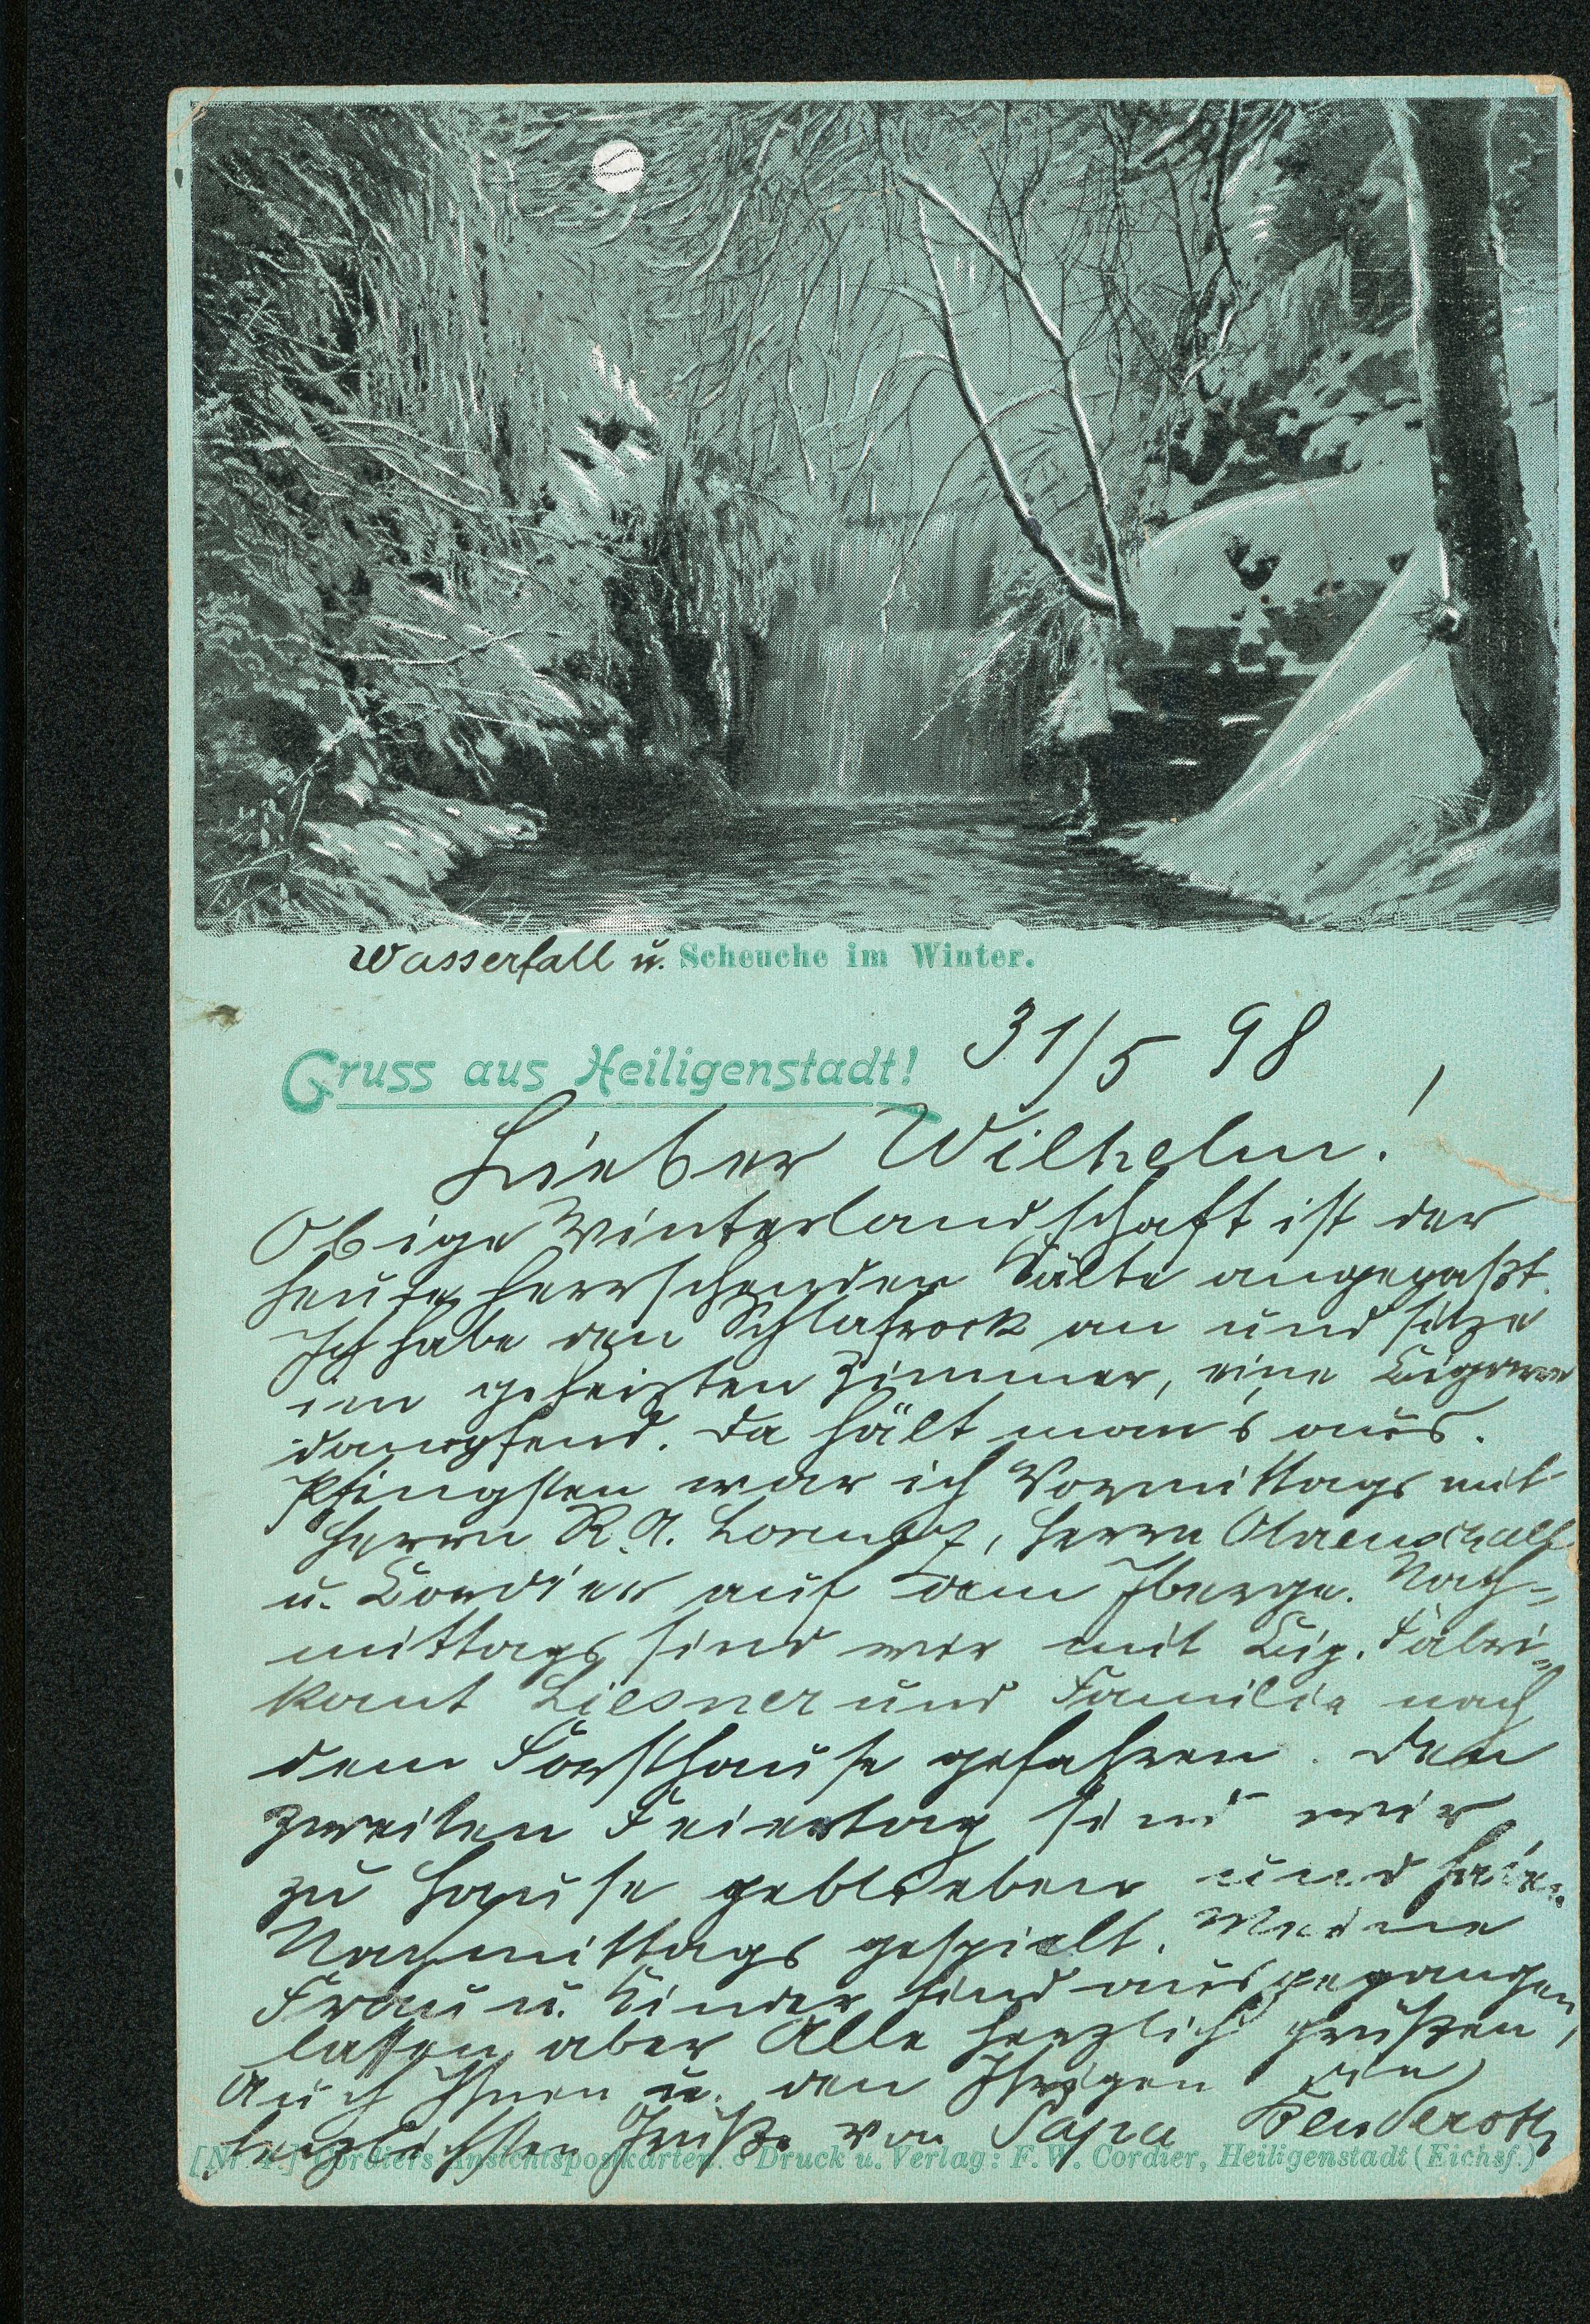 Wasserfall u. Scheuche im Winter.
Gruss aus Heiligenstadt! 31/5 98
Lieber Wilhelm!
Obige Winterlandschaft ist der
heute herrschenden Kälte angepaßt.
Ich habe den Schlafrock an und sitze
im geheizten Zimmer, eine Cigarre
dampfend. Da hält man's aus.
Pfingsten war ich Vormittags mit
Herrn R. A. Lorentz, Herrn
u. Cordier auf dem Iberge. Nach-
mittags sind wir mit Cig. Fabri-
kant Liesner und Familie nach
dem Forsthause gefahren. Den
zweiten Feiertag sind wir
zu Hause geblieben und
Nachmittags gespielt. Meine
Frau u. Kinder sind ausgegangen,
lassen aber Alle herzlich grüßen,
Auch Ihnen u. den Ihrigen die
herzlichsten Grüße von Papa
[Nr. 4.] Cordiers Ansichtspostkarten. Druck u. Verlag: F. W. Cordier, Heiligenstadt (Eichsf.)